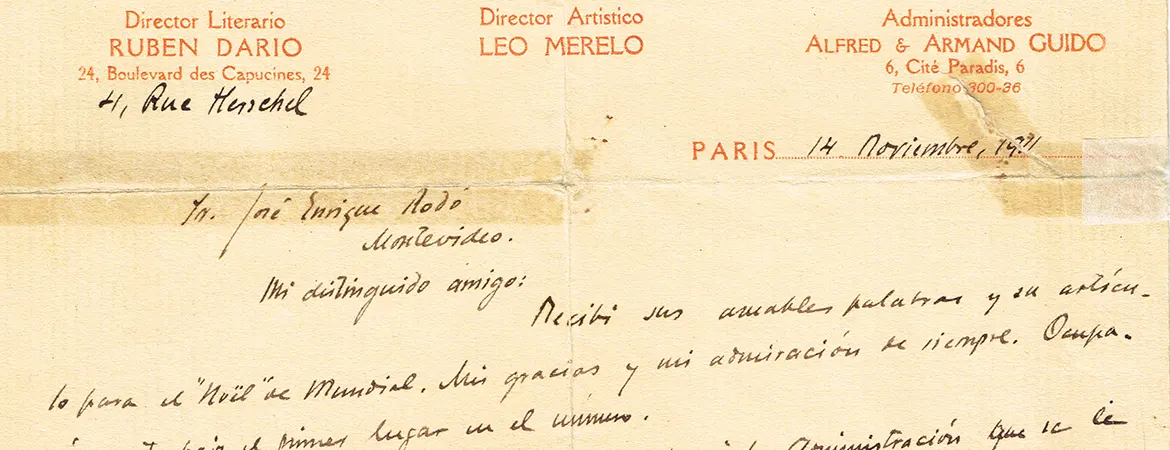 Director Literario
RUBEN DARIO
24, Boulevard des Capucines, 24
4, Rue Herschel
Director Artistico
LEO MERELO
Administradores
ALFRED & ARMAND GUIDO
6, Cité Paradis, 6
Teléfono 300-36
PARIS 14 Noviembre, 1911
Sr. José Enrique Rodó
Montevideo.
Mi distinguido amigo:
Recibí sus amables palabras y su artícu-
lo para el "Noël" de Mundial. Mis gracias y mi admiración de siempre. Ocupa-
el primer lugar en el número.
Administración que se le